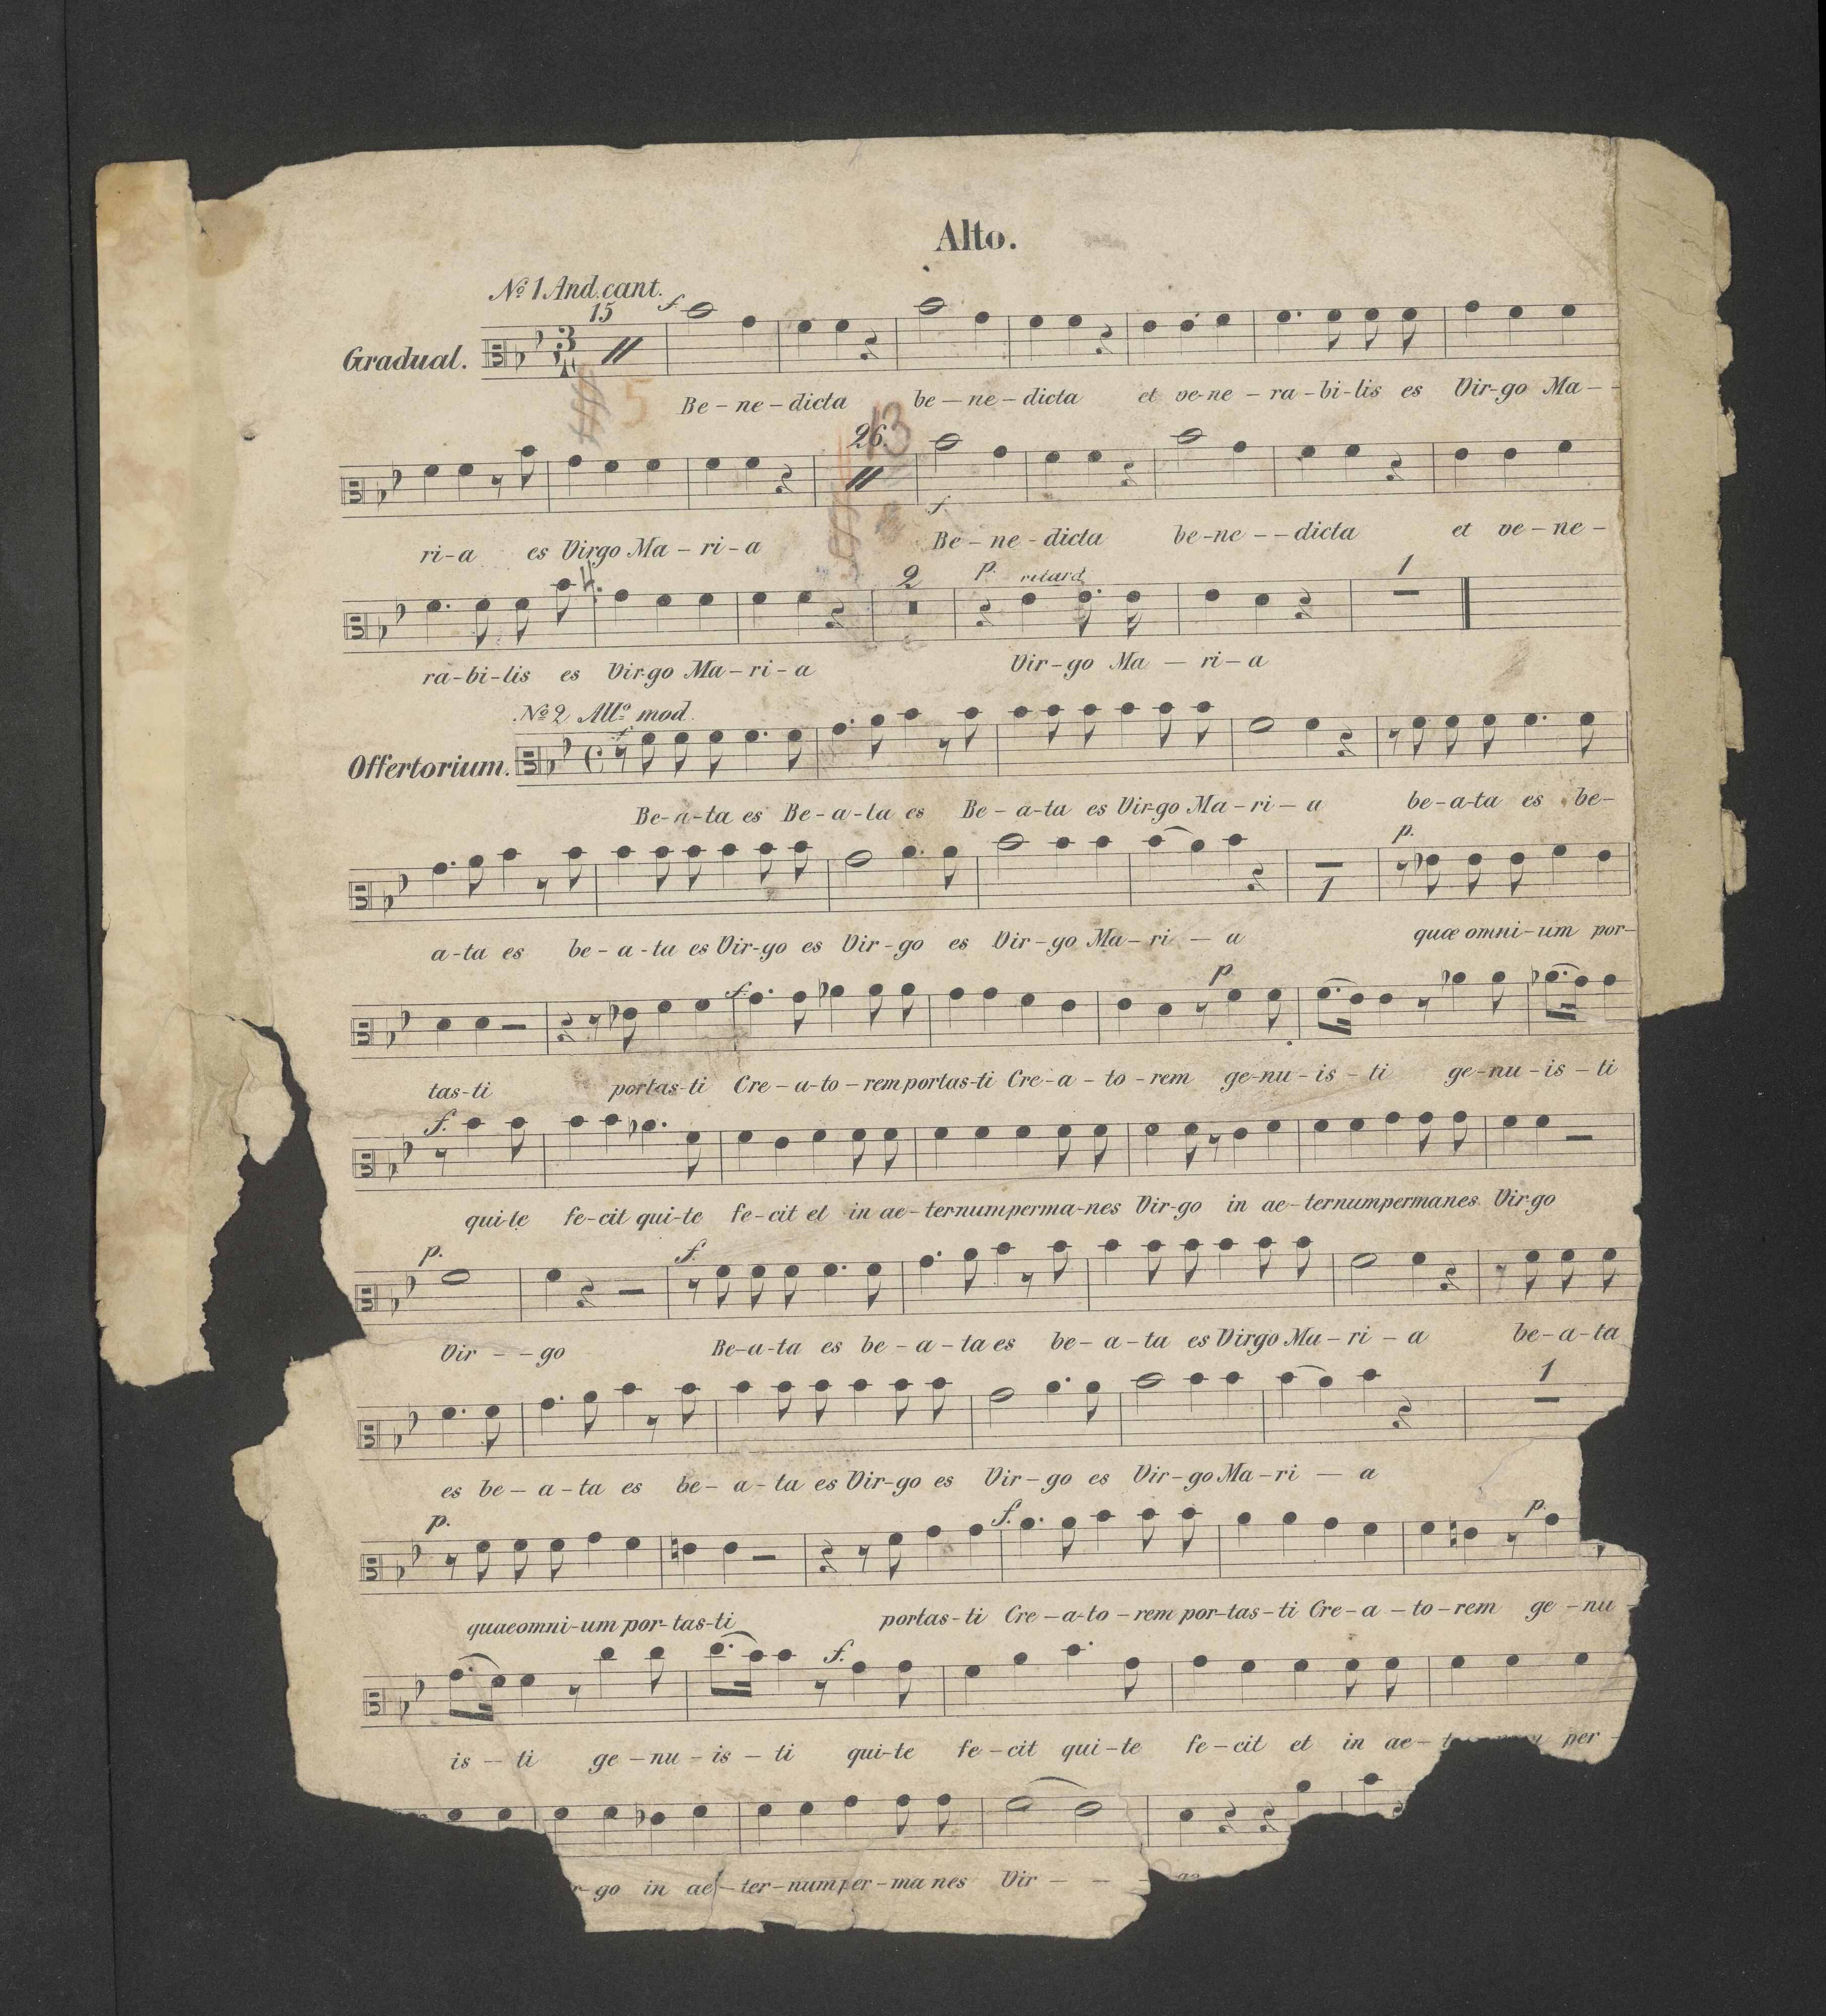 Alto.
No. 1 And. cant.
15 f
Gradual. 3/4
5
Be – ne – dicta be – ne – dicta et ve-ne – ra – bi-lis es Vir-go Ma –
26. 13
f
ri-a es Virgo Ma – ri – a Be – ne – dicta be-ne – – dicta et ve – ne –
4. 2 p. ritard. 1
ra-bi-lis es Vir-go Ma – ri – a Vir-go Ma – ri – a
No. 2 All.o mod.
f
Offertorium. C
Be-a-ta es Be-a-ta es Be – a-ta es Vir-go Ma – ri – a be-a-ta es be-
p.
1
a-ta es be – a-ta es Vir-go es Vir-go es Vir-go Ma – ri – a quæ omni-um por-
f. p
tas-ti portas-ti Cre – a-to – rem portas-ti Cre-a – to – rem ge-nu – is – ti ge-nu – is – ti
f.
qui-te fe-cit qui-te fe-cit et in ae-ternum perma-nes Vir-go in ae-ternum permanes Vir-go
p. f.
Vir – – go Be-a-ta es be – a – ta es be – a – ta es Virgo Ma – ri – a be-a-ta
1
es be – a – ta es be – a – ta es Vir-go es Vir-go es Vir-go Ma – ri — a
p. f. p.
quae omni-um por-tas-ti portas-ti Cre – a-to – rem por-tas-ti Cre-a – to – rem ge – nu –
f.
is – ti ge – nu – is – ti qui-te fe – cit qui – te fe – cit et in ae – per –
go in ae – ter – num per – ma nes Vir – –